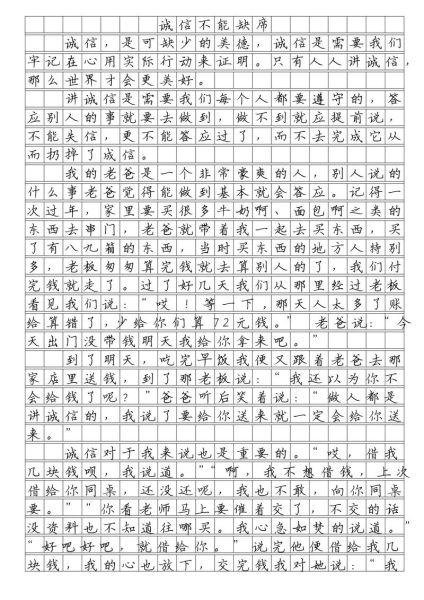 诚信不能缺席
诚信，是可缺少的美德，诚信是需要我们
牢记在心用实际行动来证明。只有人人讲诚信，
那么世界才会更美好。
讲诚信是需要我们每个人都要遵守的，答
应别人的事就要去做到，做不到就应提前说，
不能失信，更不能答应过了，而不去完成它从
而扔掉了成信。
我的老爸是一个非常豪爽的人，别人说的
什么事老爸觉得能做到基本就会答应。记得一
次过年，家里要买很多牛奶啊、面包啊之类的
东西去串门，老爸就带着我一起去买东西，买
了有八九箱的东西，当时买东西的地方人特别
多，老板匆匆算完钱就去算别人的了，我们付
完钱就走了。过了好几天我们从那里经过老板
看见我们说：“哎！等一下，那天人太多了账
给算错了，少给你们算72元钱。” 老爸说：“今
天出门没带钱明天我给你拿来吧。”
到了明天，吃完早饭我便又跟着老爸去那
家店里送钱，到了那老板说：“我还以为你不
会给钱了呢？”爸爸听后笑着说：“做人都是
讲诚信的，我说了要给你送来就一定会给你送
来。”
诚信对于我来说也是重要的。“哎，借我
几块钱呗，我说道。”“啊，我不想借钱，上次
借给你同桌，还没还呢，我也不敢，向你同桌
要。”“你看老师马上要催着交了，不交的话
没资料也不知道往哪买。我心急如焚的说道。”
“好吧好吧，就借给你。”说完他便借给我几
块钱，我的心也放下，交完钱我对她说：“我